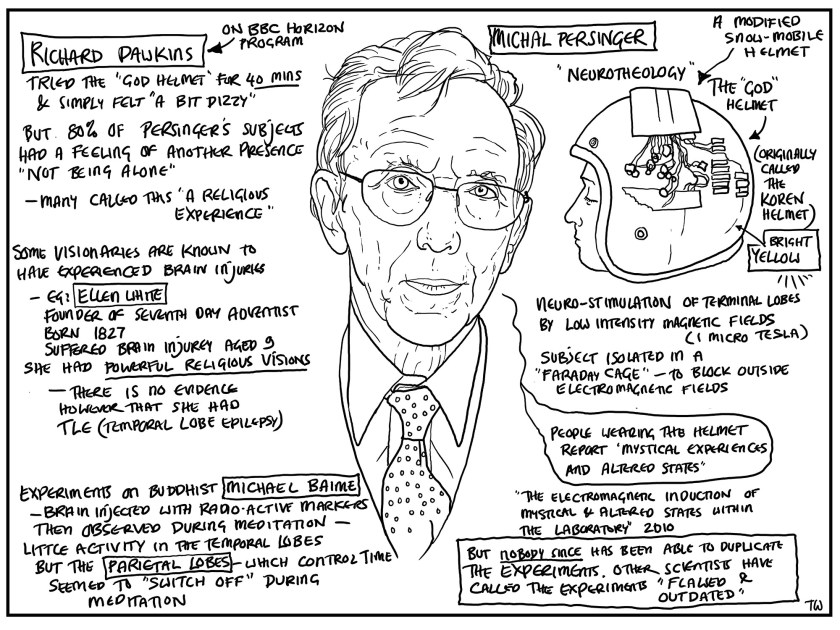 RICHARD DAWKINS
ON BBC HORIZON
PROGRAM
TRIED THE "GOD HELMET" FOR 40 MINS
& SIMPLY FELT "A BIT DIZZY"
BUT 80% OF PERSINGER'S SUBJECTS
HAD A FEELING OF ANOTHER PRESENCE
"NOT BEING ALONE"
– MANY CALLED THIS "A RELIGIOUS
EXPERIENCE"
SOME VISIONARIES ARE KNOWN TO
HAVE EXPERIENCED BRAIN INJURIES
– EG: ELLEN WHITE
FOUNDER OF SEVENTH DAY ADVENTIST
BORN 1827
SUFFERED BRAIN INJUREY AGED 9
SHE HAD POWERFUL RELIGIOUS VISIONS
– THERE IS NO EVIDENCE
HOWEVER THAT SHE HAD
TLE (TEMPORAL LOBE EPILEPSY)
EXPERIMENTS ON BUDDHIST MICHAEL BAIME
– BRAIN INJECTED WITH RADIO-ACTIVE MARKERS
THEN OBSERVED DURING MEDITATION –
LITTLE ACTIVITY IN THE TEMPORAL LOBES
BUT THE PARIETAL LOBES – WHICH CONTROL TIME
SEEMED TO "SWITCH OFF" DURING
MEDITATION
MICHAL PERSINGER
A MODIFIED
SNOW-MOBILE
HELMET
"NEUROTHEOLOGY"
THE "GOD"
HELMET
(ORIGINALLY
CALLED
THE
KOREN
HELMET)
BRIGHT
YELLOW
NEURO-STIMULATION OF TERMINAL LOBES
BY LOW INTENSITY MAGNETIC FIELDS
(1 MICRO TESLA)
SUBJECT ISOLATED IN A
"FARADAY CAGE" – TO BLOCK OUTSIDE
ELECTROMAGNETIC FIELDS
PEOPLE WEARING THE HELMET
REPORT 'MYSTICAL EXPERIENCES
AND ALTERED STATES"
"THE ELECTROMAGNETIC INDUCTION OF
MYSTICAL & ALTERED STATES WITHIN
THE LABORATORY" 2010
BUT NOBODY SINCE HAS BEEN ABLE TO DUPLICATE
THE EXPERIMENTS. OTHER SCIENTISTS HAVE
CALLED THE EXPERIMENTS "FLAWED &
OUTDATED"
TW